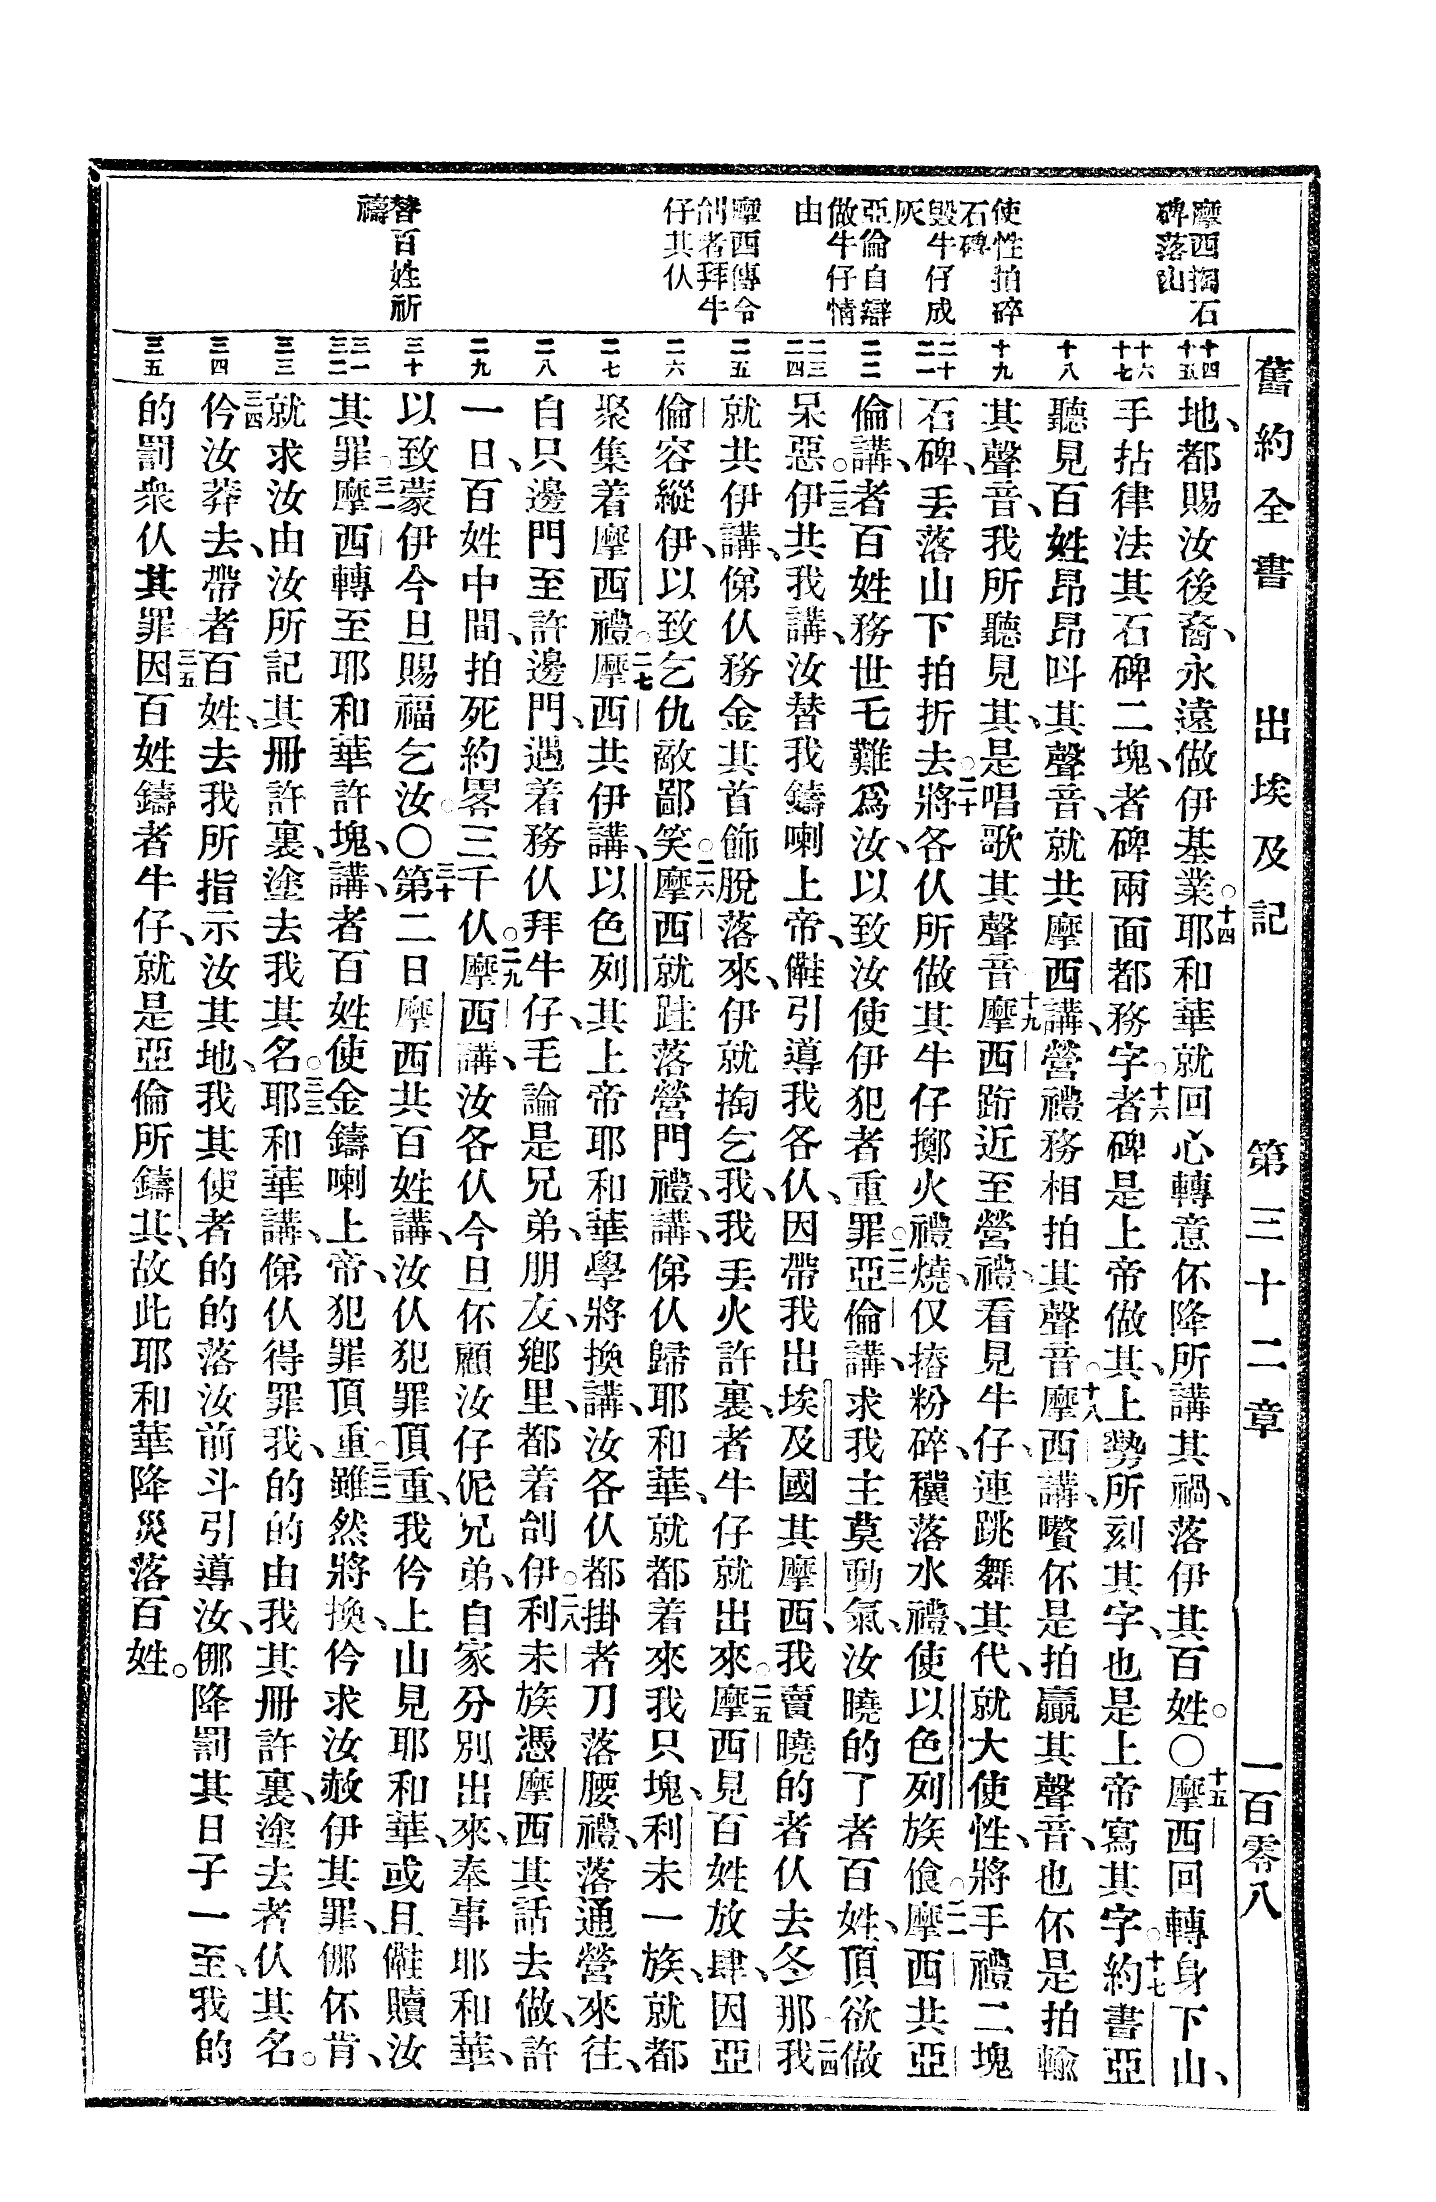 舊約全書　出埃及記　第三十二章　一百零八
摩西掏石
碑落山
使性拍碎
石碑
毀牛仔成
灰
亞倫自辯
做牛仔情
由
摩西傳令
刣者拜牛
仔其仈
替百姓祈
禱
十四
十五
十六
十七
十八
十九
二十
二一
二二
二三
二四
二五
二六
二七
二八
二九
三十
三一
三二
三三
三四
三五
地、都賜汝後裔、永遠做伊基業。十四耶和華就回心轉意伓降所講其禍、落伊其百姓。〇十五摩西回轉身下山、
手拈律法其石碑二塊、者碑兩面都務字。十六者碑是上帝做其、上勢所刻其字、也是上帝寫其字。十七約書亞
聽見百姓昂昂呌其聲音、就共摩西講、營禮務相拍其聲音。十八摩西講、嚽伓是拍贏其聲音、也伓是拍輸
其聲音、我所聽見其、是唱歌其聲音。十九摩西跡近至營禮、看見牛仔、連跳舞其代、就大使性、將手禮二塊
石碑、丟落山下拍折去。二十將各仈所做其牛仔擲火禮燒、仅摏粉碎、落水禮、使以色列族飡。二一摩西共亞
倫講、者百姓務世乇難爲汝、以致汝使伊犯者重罪。二二亞倫講、求我主莫動氣、汝曉的了者百姓、頂欲做
呆惡。二三伊共我講、汝替我鑄喇上帝、𠆧引導我各仈、因帶我出埃及國其摩西、我賣曉的者仈去冬那。二四我
就共伊講、俤仈務金其首飾脫落來、伊就掏乞我、我丟火許裏、者牛仔就出來。二五摩西見百姓放肆、因亞
倫容縱伊、以致乞仇敵鄙笑。二六摩西就跬落營門禮、講、俤仈歸耶和華、就都着來我只塊、利未一族、就都
聚集着摩西禮。二七摩西共伊講、以色列其上帝耶和華學將換講、汝各仈都掛者刀落腰禮、落通營來往、
自只邊門至許邊門、遇着務仈拜牛仔、毛論是兄弟朋友、鄉里、都着刣伊。二八利未族憑摩西其話去做、許
一日、百姓中間、拍死約畧三千仈。二九摩西講、汝各仈今旦伓顧汝仔伲兄弟、自家分別出來、奉事耶和華、
以致蒙伊今旦賜福乞汝。〇三十第二日摩西共百姓講、汝仈犯罪頂重、我仱上山見耶和華、或且𠆧贖汝
其罪。三一摩西轉至耶和華許塊、講、者百姓使金鑄喇上帝、犯罪頂重。三二雖然將換、仱求汝赦伊其罪、倻伓肯、
就求汝由汝所記其冊許裏、塗去我其名。三三耶和華講、俤仈得罪我、的的由我其冊許裏、塗去者仈其名。
三四仱汝莽去、帶者百姓、去我所指示汝其地、我其使者、的的落汝前斗引導汝、倻降罰其日子一至、我的
的罰衆仈其罪。三五因百姓鑄者牛仔、就是亞倫所鑄其、故此耶和華降災落百姓。